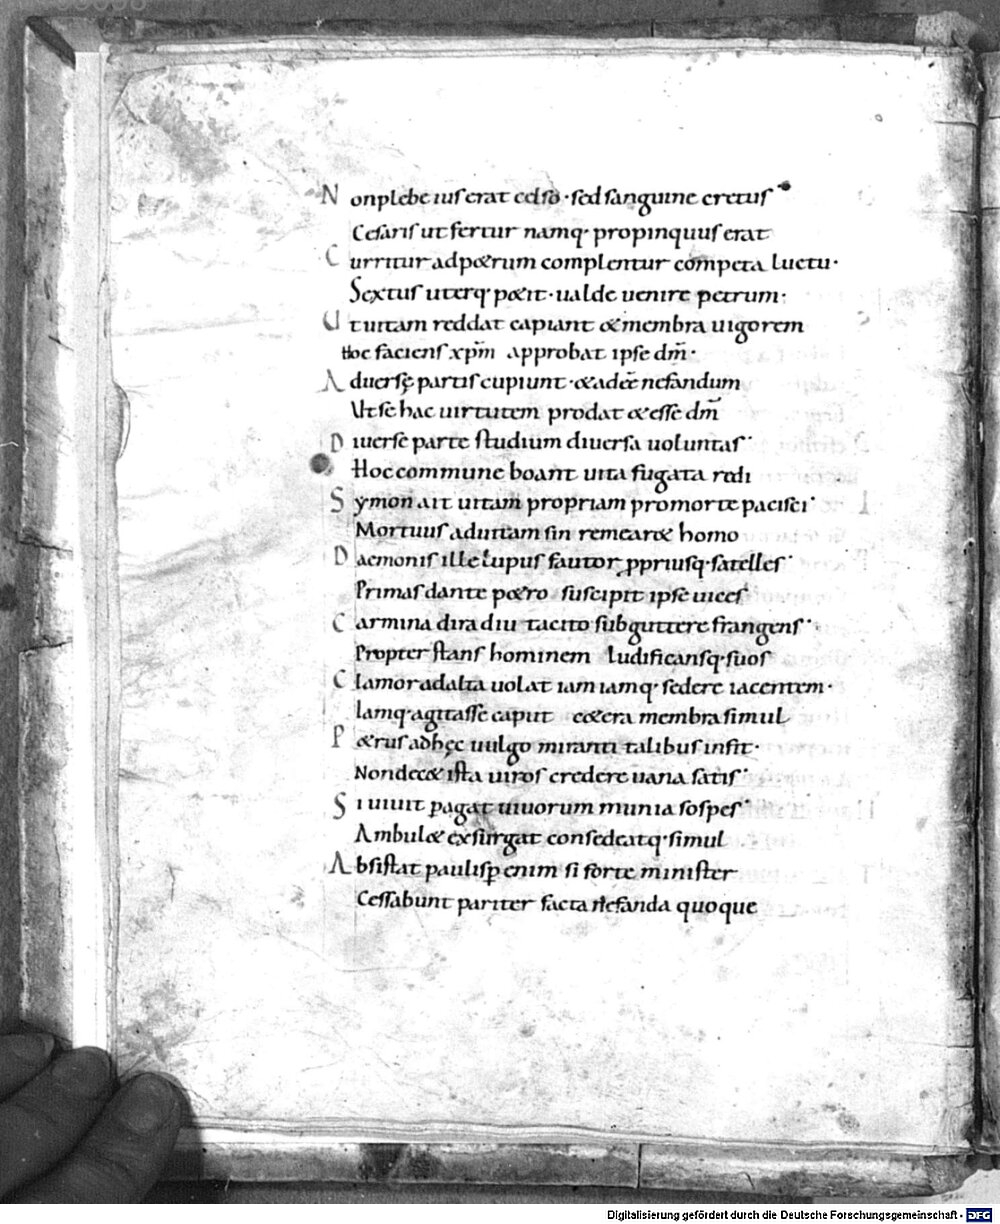 Non plebeius erat celso · sed sanguine cretus
Cesaris ut fertur namq· propinquus erat
Curritur ad petrum complentur competa luctu·
Sextus uterq· petit· ualde uenire petrum·
Ut uitam reddat capiant & membra uigorem
Hoc faciens xp̄m approbat ipse dm̄·
Aduersę partis cupiunt· & adeē nefandum
Ut se hac uirtutem prodat & esse dm̄
Diuerse parte studium diuersa uoluntas·
Hoc commune boant uita fugata redi
Symon ait uitam propriam pro morte pacisci·
Mortuus ad uitam sin remear& homo
Daemonis ille lupus fautor ꝓpriusq· satelles·
Primas dante petro suscipit ipse uices
Carmina dira diu tacito sub guttere frangens·
Propter stans hominem ludificansq· suos
Clamor ad alta uolat iam iamq· sedere iacentem·
Iamq· agitasse caput cetera membra simul
P&rus ad hęc uulgo miranti talibus insit·
Non dec& ista uiros credere uana satis·
Si uiuit ꝑagat uiuorum munia sospes·
Ambul& exsurgat consedeatq· simul
Absistat paulisꝑ enim si forte minister
Cessabunt pariter facta nefanda quoque
Digitalisierung gefördert durch die Deutsche Forschungsgemeinschaft - DFG